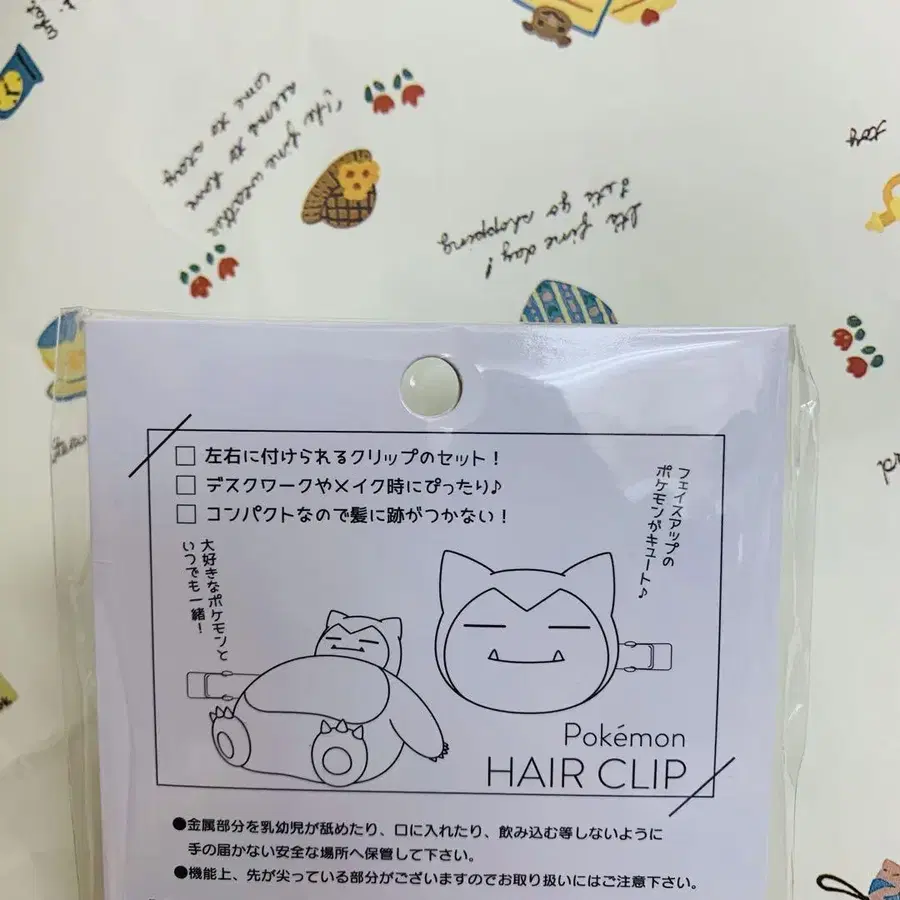 The fine weather
seems to have
come to stay
It's fine day!
Let's go shopping
toy
□ 左右に付けられるクリップのセット！
□ デスクワークやメイク時にぴったり♪
□ コンパクトなので髪に跡がつかない！
フェイスアップの
ポケモンがキュート♪
大好きなポケモンと
いつでも一緒！
Pokémon
HAIR CLIP
●金属部分を乳幼児が舐めたり、口に入れたり、飲み込む等しないように
手の届かない安全な場所へ保管して下さい。
●機能上、先が尖っている部分がございますのでお取り扱いにはご注意下さい。